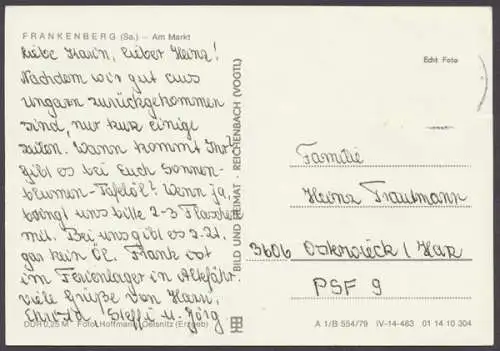 FRANKENBERG (Sa.) — Am Markt
Liebe Karin, lieber Heinz!
Nachdem wir gut aus
Ungarn zurückgekommen
sind, nur kurz einige
Zeilen. Wann kommt Ihr?
gibt es bei Euch Sonnen-
blumen-Tafelöl? Wenn ja,
bringt uns bitte 2-3 Flaschen
mit. Bei uns gibt es z.Zt.
gar kein Öl. Frank ist
im Ferienlager in
viele Grüße von
Steffi u. Jörg
DDR 0,25 M Foto: Hoffmann, Oelsnitz (Erzgeb)
BILD UND HEIMAT · REICHENBACH (VOGTL)
Echt Foto
Familie
Heinz Trautmann
3606 Osterwieck / Harz
PSF 9
A 1/B 554/79 IV-14-483 01 14 10 304